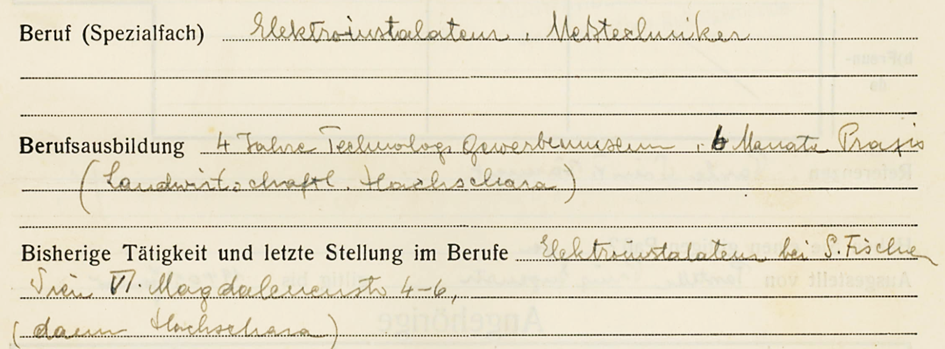 Beruf (Spezialfach) Elektroinstalateur, Meßtechniker
Berufsausbildung 4 Jahre Technolog. Gewerbemuseum, 6 Monate Praxis
(Landwirtschaftl. Hachschara)
Bisherige Tätigkeit und letzte Stellung im Berufe Elektroinstalateur bei S. Fischer
Wien VI. Magdalenenstr 4-6,
(dann Hachschara)